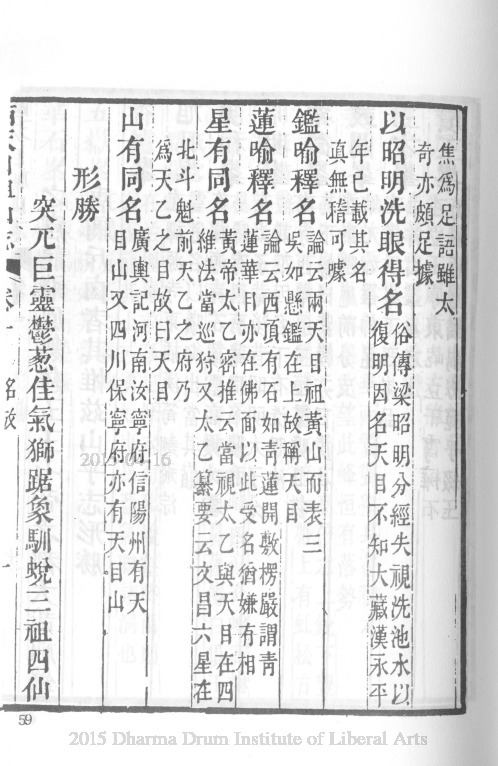 焦爲足語雖太
奇亦頗足據
以昭明洗眼得名俗傳梁昭明分經失視洗池水以
復明因名天目不知大藏漢永平
年已載其名
真無稽可噱
鑑喻釋名論云兩天目祖黃山而表三
吳如懸鑑在上故稱天目
蓮喻釋名論云西頂有石如靑蓮開敷楞嚴謂靑
蓮華目亦在佛面以此受名猶嫌有相
星有同名黃帝太乙密推云當視太乙與天目在四
維法當巡狩又太乙纂要云文昌六星在
北斗魁前天乙之府乃
爲天乙之目故曰天目
山有同名廣輿記河南汝寧府信陽州有天
目山又四川保寧府亦有天目山
形勝
突兀巨靈鬱葱佳氣獅踞象馴蛻三祖四仙
卷一 名攷 一
59
2015 Dharma Drum Institute of Liberal Arts